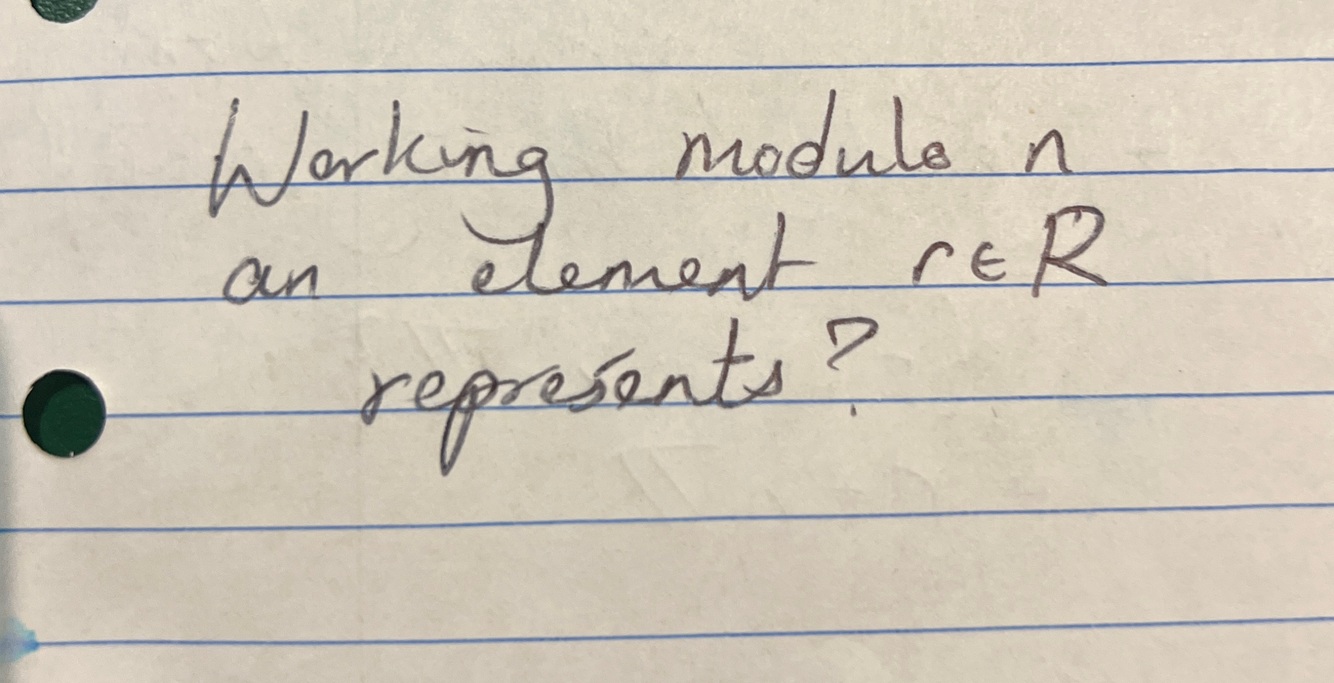 Working modulo n
an element r∈R
represents?